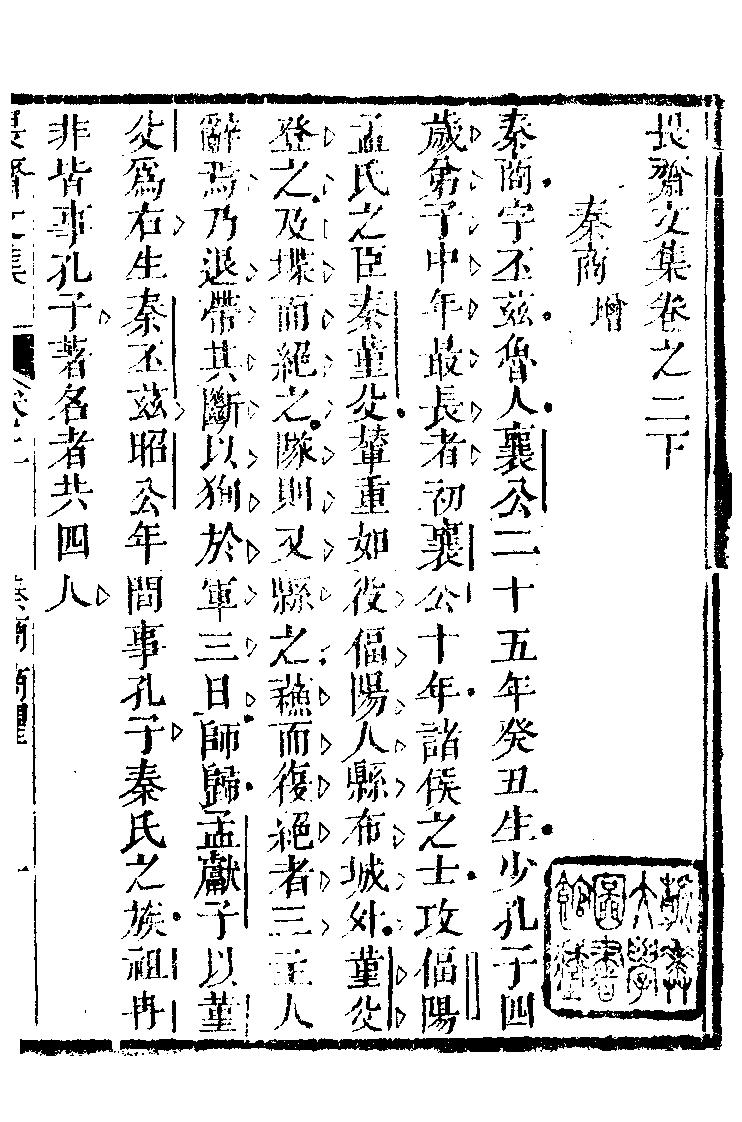 長齋文集卷之二下
秦商增
秦商字丕茲魯人襄公二十五年癸丑生少孔子四
歲弟子中年最長者初襄公十年諸侯之士攻偪陽
孟氏之臣秦菫父輦重如役偪陽人縣布城外菫父
登之及堞而絕之隊則又縣之蘇而復絕者三主人
辭焉乃退帶其斷以狥於軍三日師歸孟獻子以菫
父爲右生秦丕茲昭公年間事孔子秦氏之族祖冉
非皆事孔子著名者共四人
秦商商瞿
大學
圖書
館